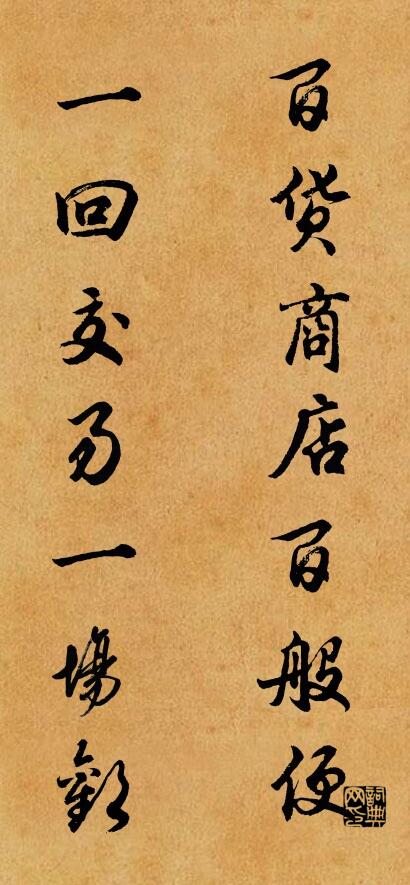 百货商店百般便
一回交易一場歡